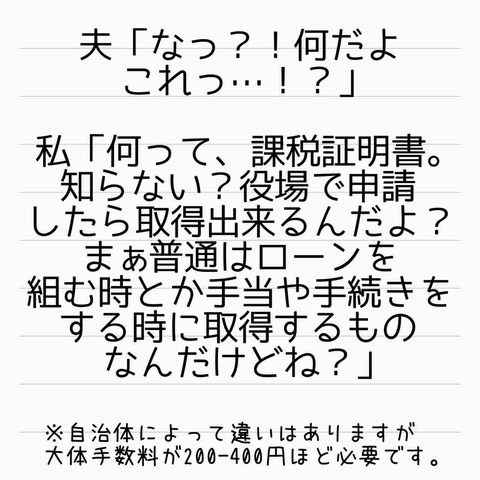 夫「なっ？！何だよ
これっ…！？」
私「何って、課税証明書。
知らない？役場で申請
したら取得出来るんだよ？
まぁ普通はローンを
組む時とか手当や手続きを
する時に取得するもの
なんだけどね？」
※自治体によって違いはありますが
大体手数料が200-400円ほど必要です。